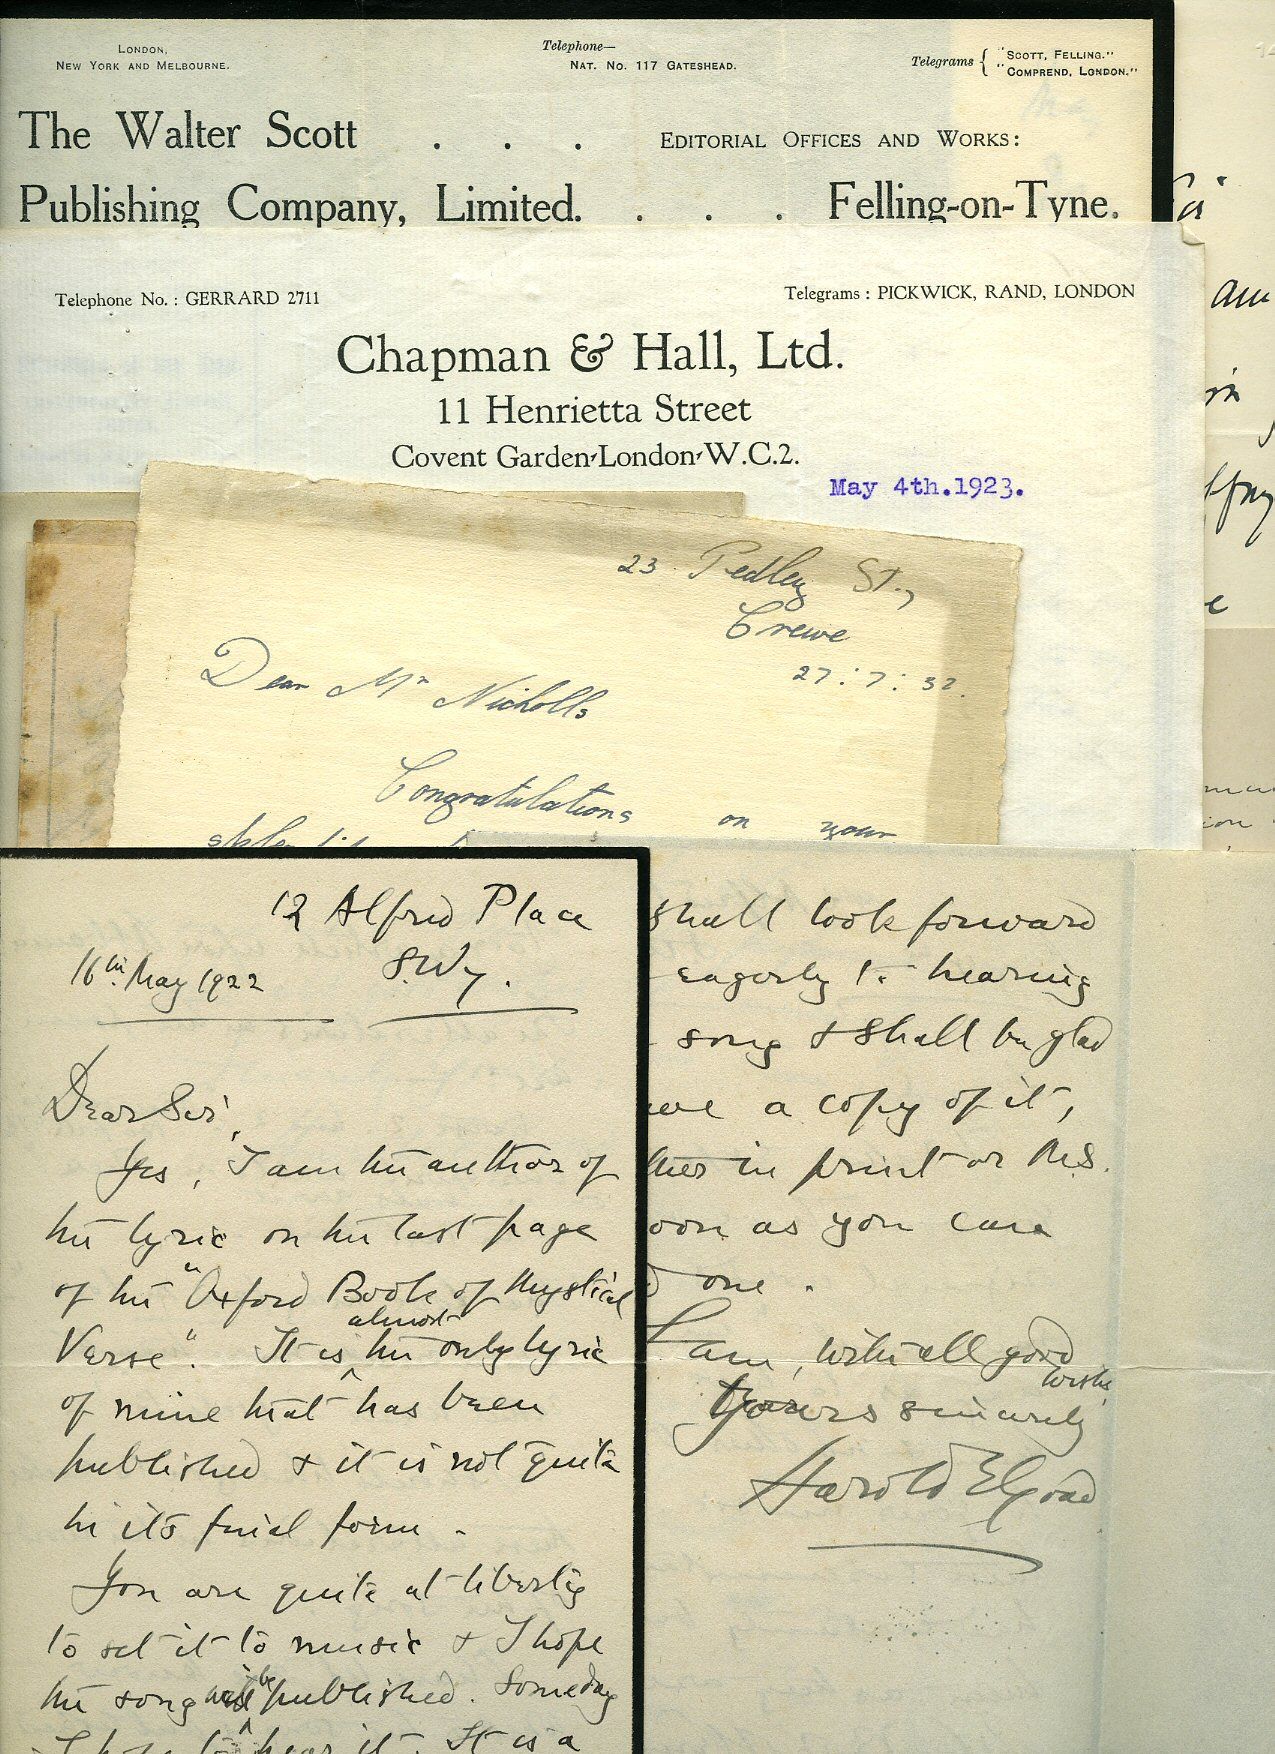 LONDON,
NEW YORK AND MELBOURNE.
Telephone—
NAT. NO. 117 GATESHEAD.
Telegrams { "SCOTT, FELLING."
"COMPREND, LONDON."
The Walter Scott . . .
Publishing Company, Limited. . . .
EDITORIAL OFFICES AND WORKS:
Felling-on-Tyne.
Telephone No. : GERRARD 2711
Telegrams : PICKWICK, RAND, LONDON
Chapman & Hall, Ltd.
11 Henrietta Street
Covent Garden-London-W.C.2.
May 4th.1923.
am
in
23 Pedley St.,
Crewe
27 : 7 : 32.
Dear Mr Nicholls
Congratulations on your
12 Alfred Place
S.W.7.
16th May 1922
Dear Sir,
Yes, I am the author of
the lyric on the last page
of the "Oxford Book of Mystical
Verse". It is almost the only lyric
of mine that has been
published & it is not quite
in its final form.
You are quite at liberty
to set it to music & I hope
the song will be published. Someday
I hope to hear it. It is a
shall look forward
eagerly to hearing
song & shall be glad
a copy of it,
in print or MS.
as you care
one.
I am, with all good
wishes
Yours sincerely
Harold E Goad